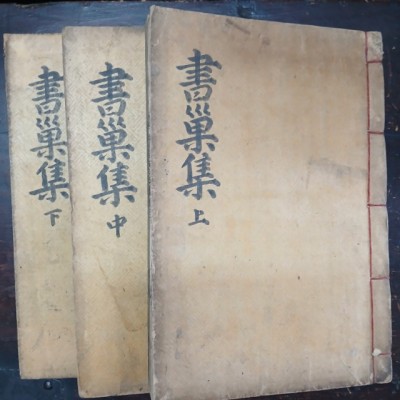 書巢集 上
書巢集 中
書巢集 下